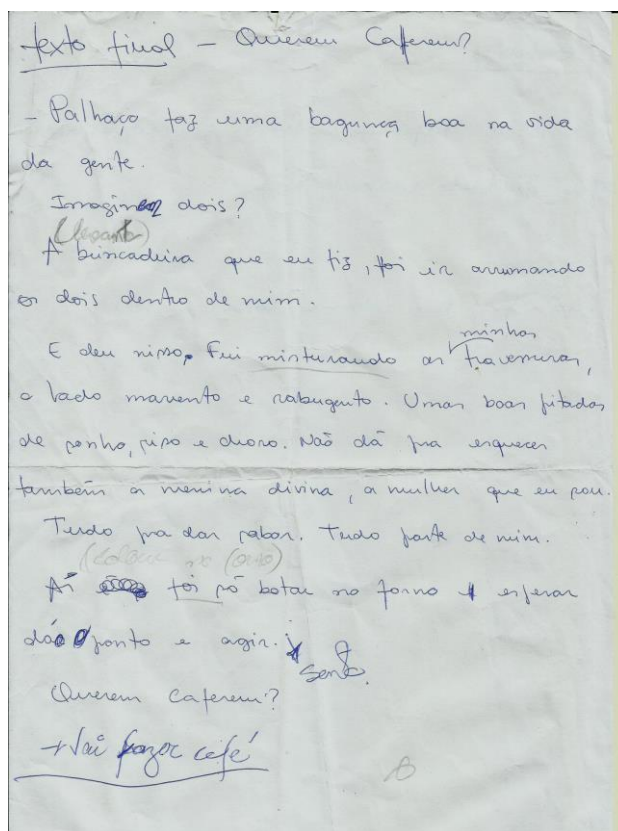 texto final - Querem Caferem?
- Palhaço faz uma bagunça boa na vida
da gente.
Imaginem dois?
(Levanta)
A brincadeira que eu fiz, foi ir arrumando
os dois dentro de mim.
minhas
E deu nisso. Fui misturando as travessuras,
o lado marrento e rabugento. Umas boas pitadas
de sonho, riso e choro. Não dá pra esquecer
também a menina divina, a mulher que eu sou.
Tudo pra dar sabor. Tudo parte de mim.
(coloca no
Aí foi só botar no forno esperar
ponto e agir.
Senta.
Querem caferem?
→ Vai fazer café